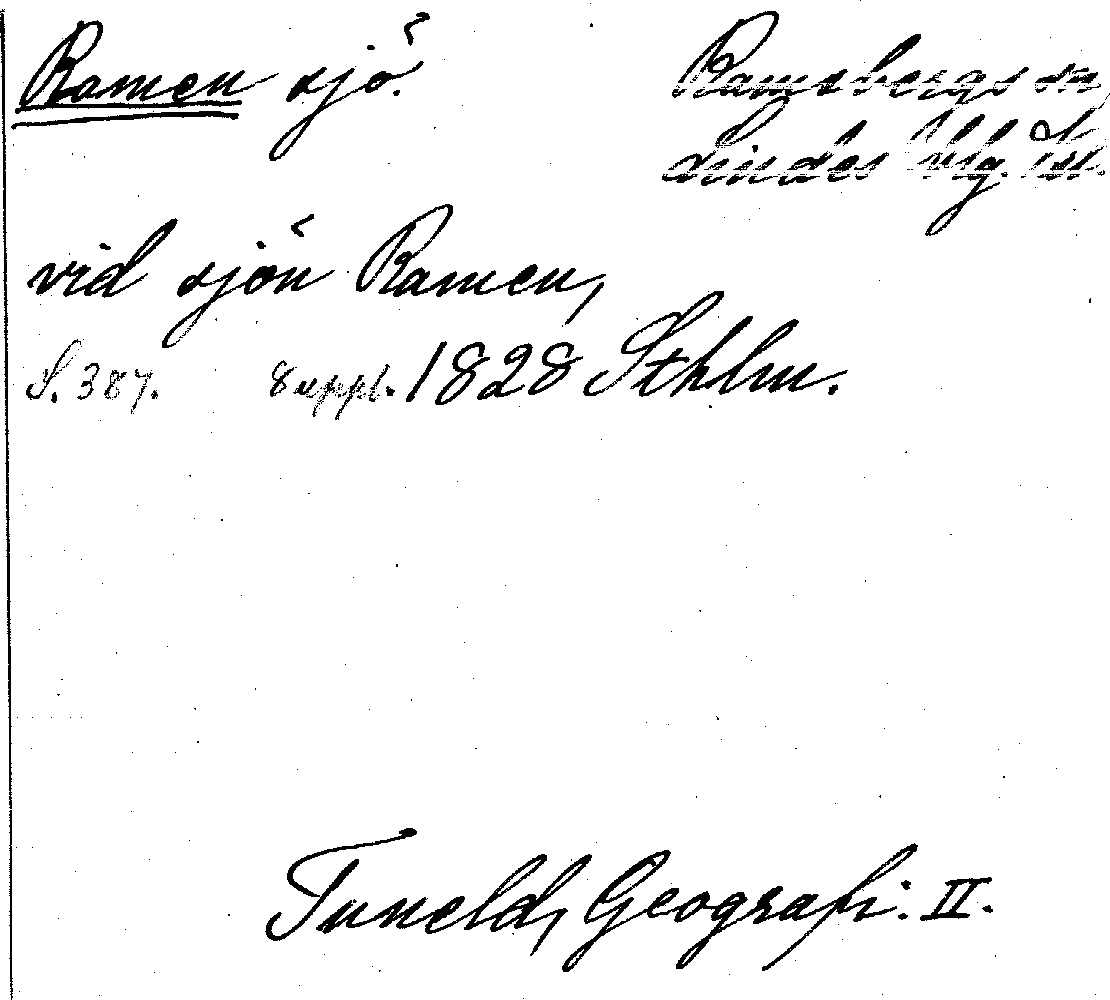 Ramen sjö.
Ramsbergs sn,
Lindes
vid sjön Ramen,
S. 387. 8 uppl. 1828 Sthlm.
Tuneld, Geografi. II.